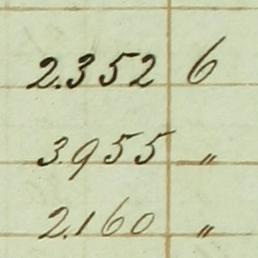 2.352 6
3.955 "
2.160 "